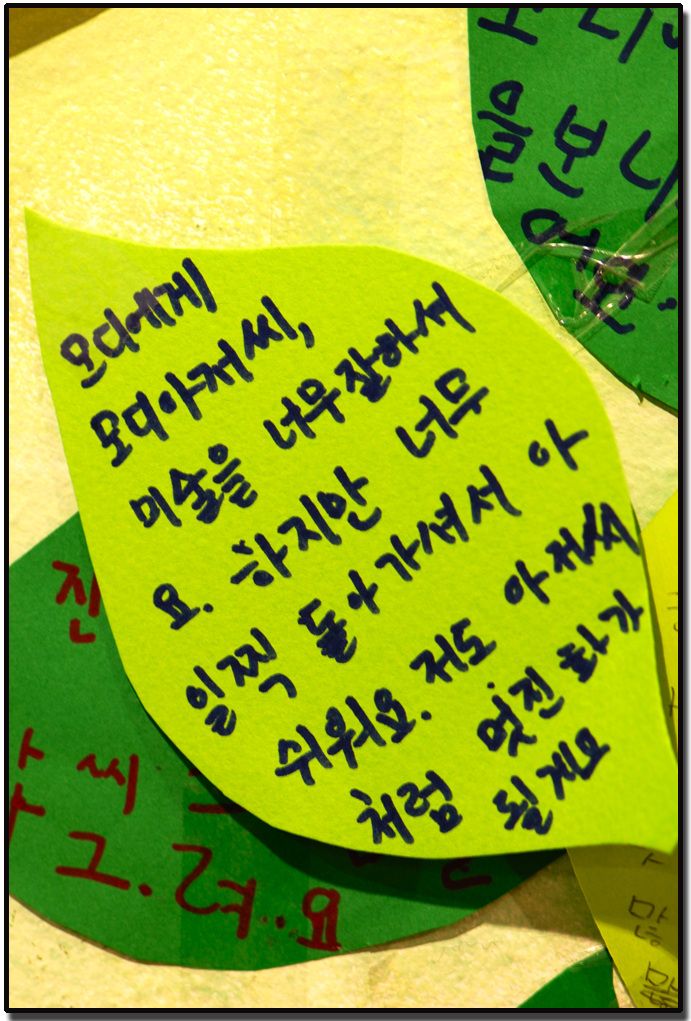 모디에게
모디아저씨,
미술을 너무잘하셔
요. 하지만 너무
일찍 돌아가셔서 아
쉬워요. 저도 아저씨
처럼 멋진 화가
될게요
보니
진
씨
그.려..요